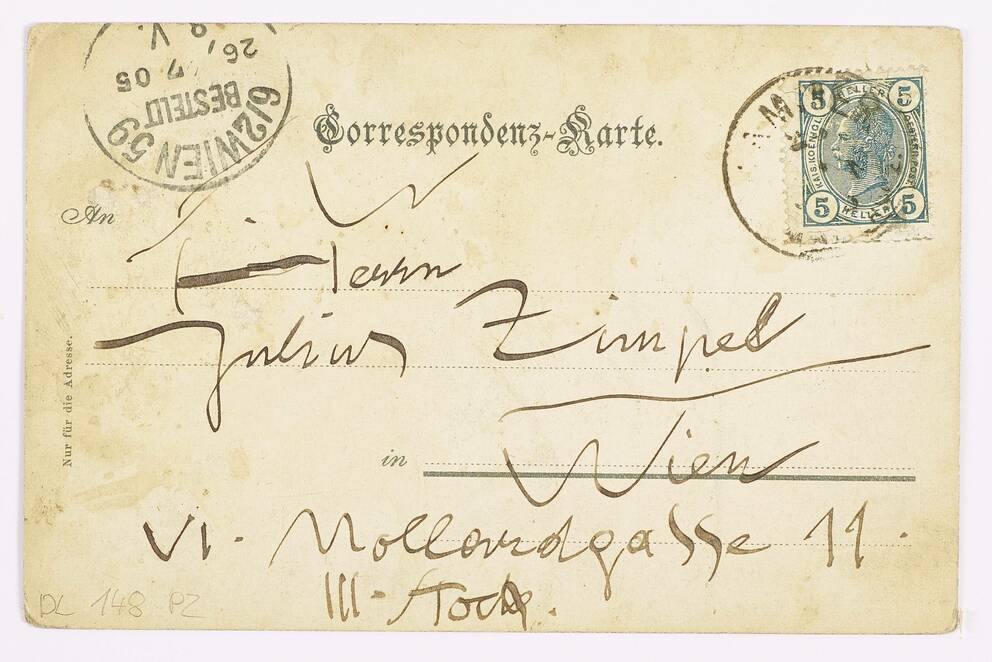 6/2 WIEN 59
BESTELLT
26/ 7 05
8. V.
Correspondenz-Karte.
5 HELLER 5
KAIS. KOENIGL.
5 HELLER 5
An
S. W.
Herrn
Julius Zimpel
in Wien
VI. Mollardgasse 11.
III. Stock.
Nur für die Adresse.
DL 148 PZ